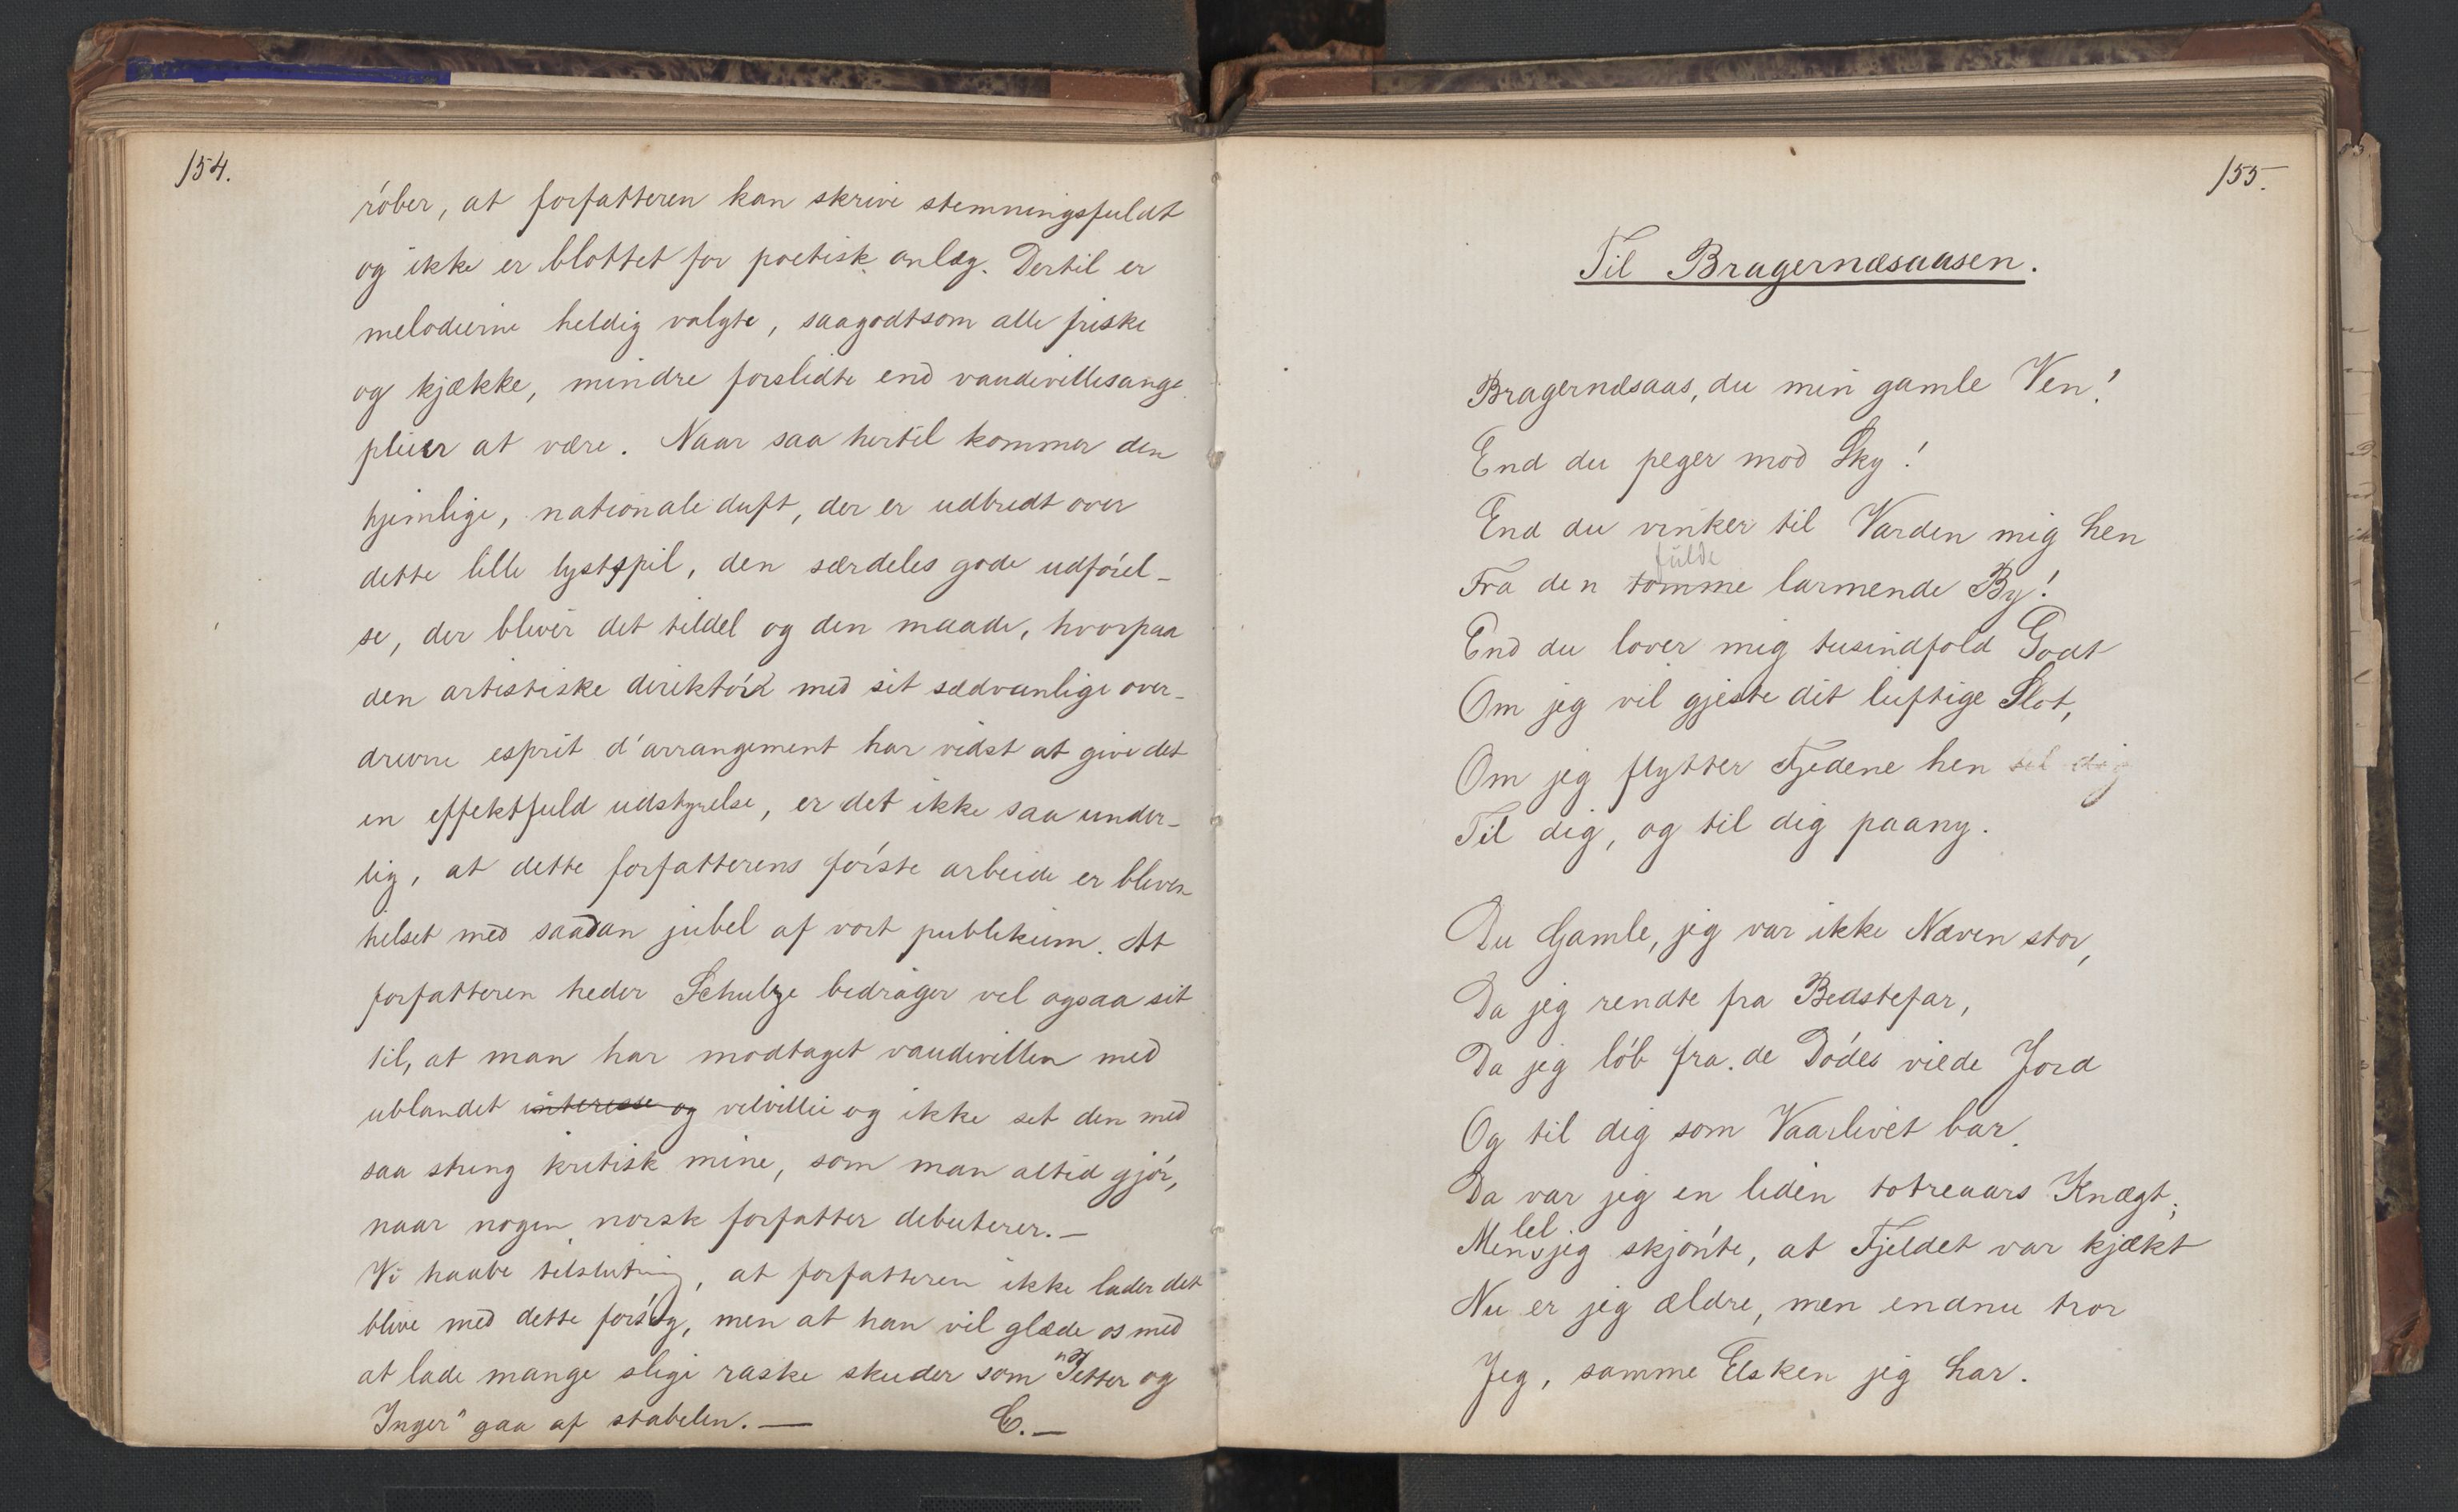 154.
røber, at forfatteren kan skrive stemningsfuldt
og ikke er blottet for poetisk anlæg. Dertil er
melodierne heldig valgte, saagodtsom alle friske
og kjække, mindre forslidte end vaudevillesange
pleier at være. Naar saa hertil kommer den
hjemlige, nationale duft, der er udbredt over
dette lille lystspil, den særdeles gode udførel-
se, der bliver det tildel og den maade, hvorpaa
den artistiske direktør med sit sædvanlige over-
drevne esprit d'arrangement har vidst at give det
en effektfuld udstyrelse, er det ikke saa under-
lig, at dette forfatterens første arbeide er bleven
hilset med saadan jubel af vort publikum. At
forfatteren heder Schulze bedrager vel ogsaa sit
til, at man har modtaget vaudevillen med
ublandet interesse og velvillie og ikke set den med
saa streng kritisk mine, som man altid gjør,
naar nogen norsk forfatter debuterer.—
Vi haabe tilslutning, at forfatteren ikke lader det
blive med dette forsøg, men at han vil glæde os med
at lade mange slige raske skuder som "Petter og
Inger" gaa af stabelen. — C.—
155.
Til Bragernæsaasen.
Bragernæsaas, du min gamle Ven!
End du peger mod Sky!
End du vinker til Varden mig hen
fulde
Fra den tomme larmende By!
End du lover mig tusindfold Godt
Om jeg vil gjeste dit luftige Slot,
Om jeg flytter Fjedene hen til dig
Til dig, og til dig paany.
Du Gamle, jeg var ikke Næven stor,
Da jeg rendte fra Bedstefar,
Da jeg løb fra de Dødes viede Jord
Og til dig som Vaarlivet bar.
Da var jeg en liden totreaars Knægt;
lel
Men jeg skjønte, at Fjeldet var kjækt
Nu er jeg ældre, men endnu tror
Jeg, samme Elsken jeg har.